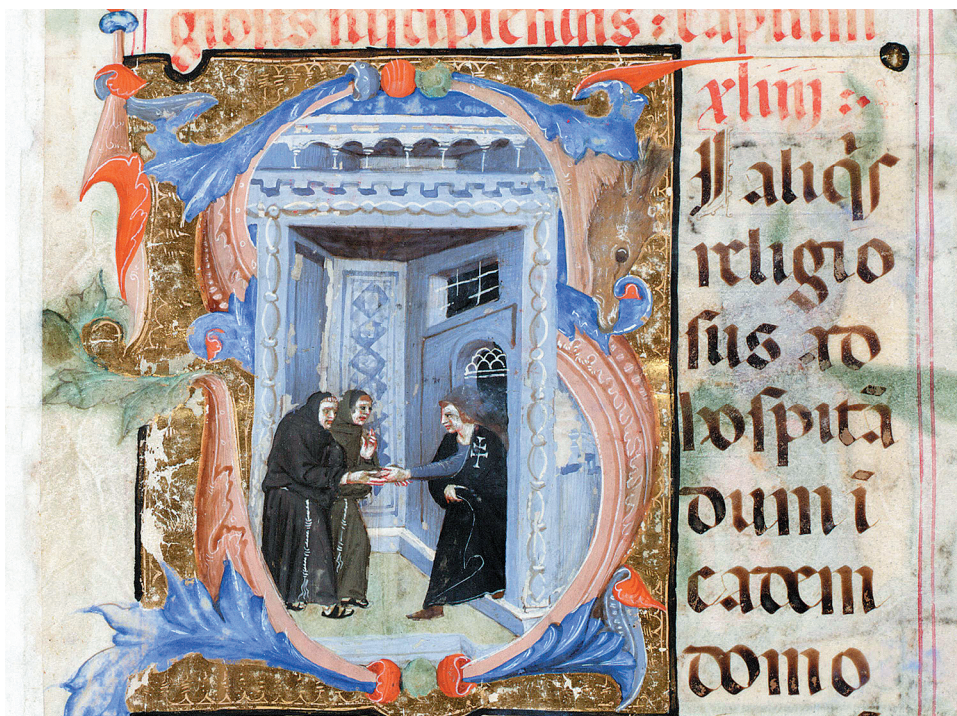 giosis suscipiendis :
xliiij :
SI aliq̃s
religio
sus ad
hospitā
dum i
eadem
domo